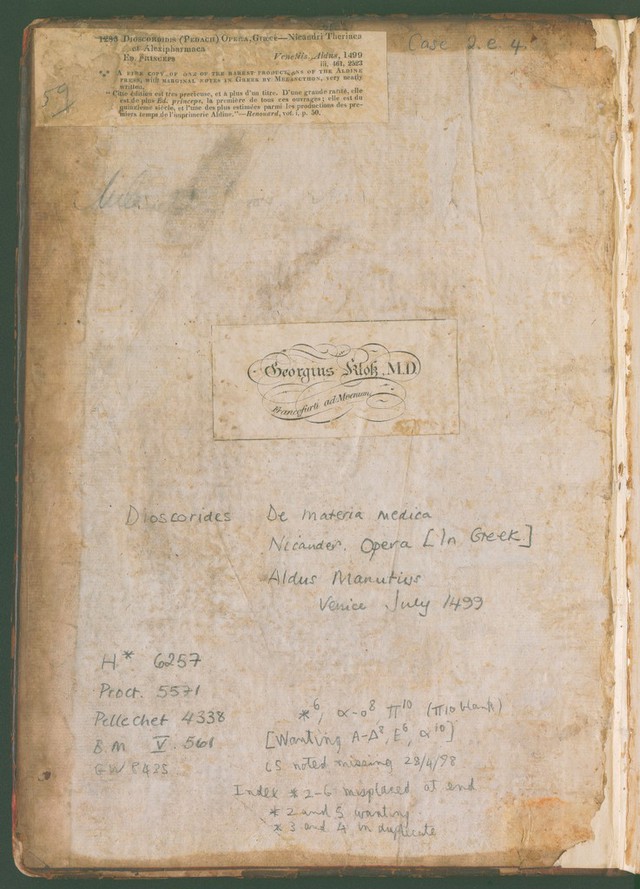 1293 Dioscoridis (Pedach) Opera, Græcè—Nicandri Theriaca
et Alexipharmaca
Ed. Princeps Venetiis Aldus, 1499
A fine copy of one of the rarest productions of the Aldine
press, with marginal notes in Greek by Melancthon, very neatly
written.
"Cette édition est très précieuse, et à plus d'un titre. D'une grande rareté, elle
est de plus Ed. princeps, la première de tous ces ouvrages; elle est du
quinzième siècle, et l'une des plus estimées parmi les productions des pre-
miers temps de l'imprimerie Aldine."—Renouard, vol. i, p. 50.
Case 2.e.4.
59
Georgius Kloß, M.D.
Francofurti ad Moenum
Dioscorides De materia medica
Nicander. Opera [In Greek]
Aldus Manutius
Venice July 1499
H.* 6257
Proct. 5571
Pellechet 4338
B.M V. 561
GW 8435
*6, α-ο8, π10 (π10 blank)
[Wanting A-Δ8, E6, α10]
LS noted missing 28/4/98
Index *2-6 misplaced at end
*2 and 5 wanting
*3 and 4 in duplicate